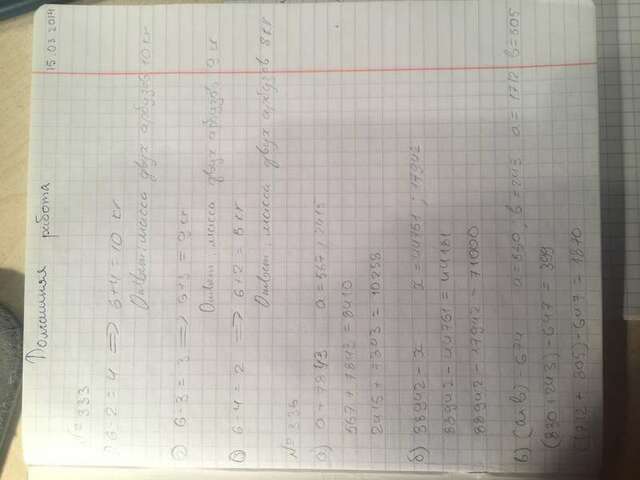 Домашняя работа
15.03.2014
№ 333
6-2=4 => 6+4=10 кг
Ответ: масса двух арбузов 10 кг
2) 6-3=3 => 6+3=9 кг
Ответ: масса двух арбузов 9 кг
3) 6-4=2 => 6+2=8 кг
Ответ: масса двух арбузов 8 кг
№ 336
а) а+7843 а=567; 2415
567+7843=8410
2415+7843=10258
б) 88942-х х=44761; 17942
88942-44761=44181
88942-17942=71000
в) (а+в)-674 а=830, в=243 а=1712 в=805
(830+243)-647=399
(1712+805)-647=1870